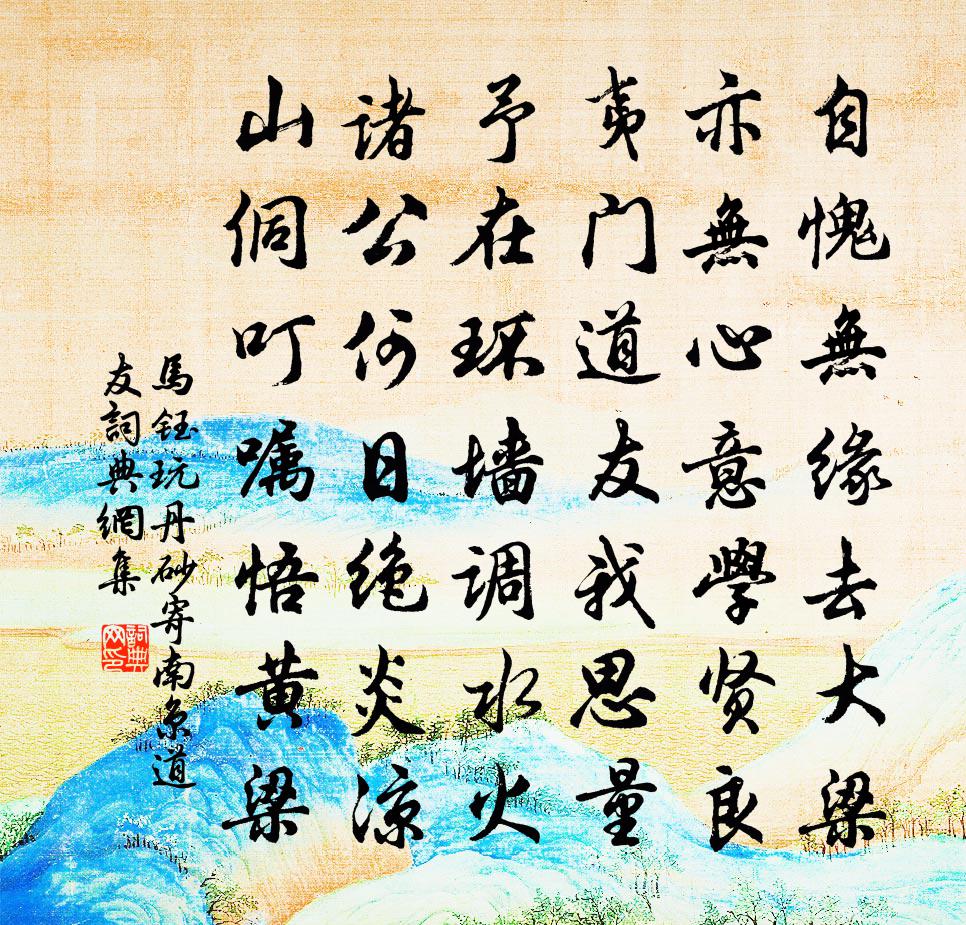 自愧無缘去大梁
亦無心意學贤良
夷门道友我思量
予在环墙调水火
诸公何日绝炎凉
山侗叮嘱悟黄梁
馬钰玩丹砂寄南京道
友詞典網集
詞典網印